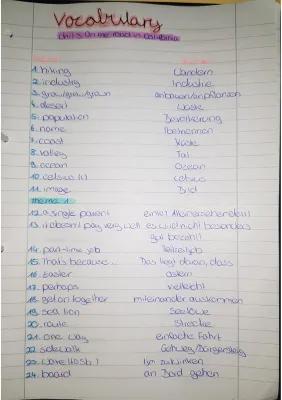 Vocabulary
1. hiking Wandern
2. industry Industrie
3. grow/grew/grown anbauen/anpflanzen
4. desert Wüste
5. population Bevölkerung
6. name benennen
7. coast Küste
8. valley Tal
9. ocean Ozean
10. celsius Celsius
11. image Bild
Thema 1
12. a single parent
13. it doesn't pay very well es wird nicht besonders
gut bezahlt
14. part-time job Teilzeitjob
15. That's because... Das liegt daran, dass
16. Easter Ostern
17. perhaps vielleicht
18. get on together miteinander auskommen
19. sea lion Seelöwe
20. route Strecke
21. one way einfache Fahrt
22. sidewalk Gehweg/Bürgersteig
23. wave zuwinken
24. board an Bord gehen